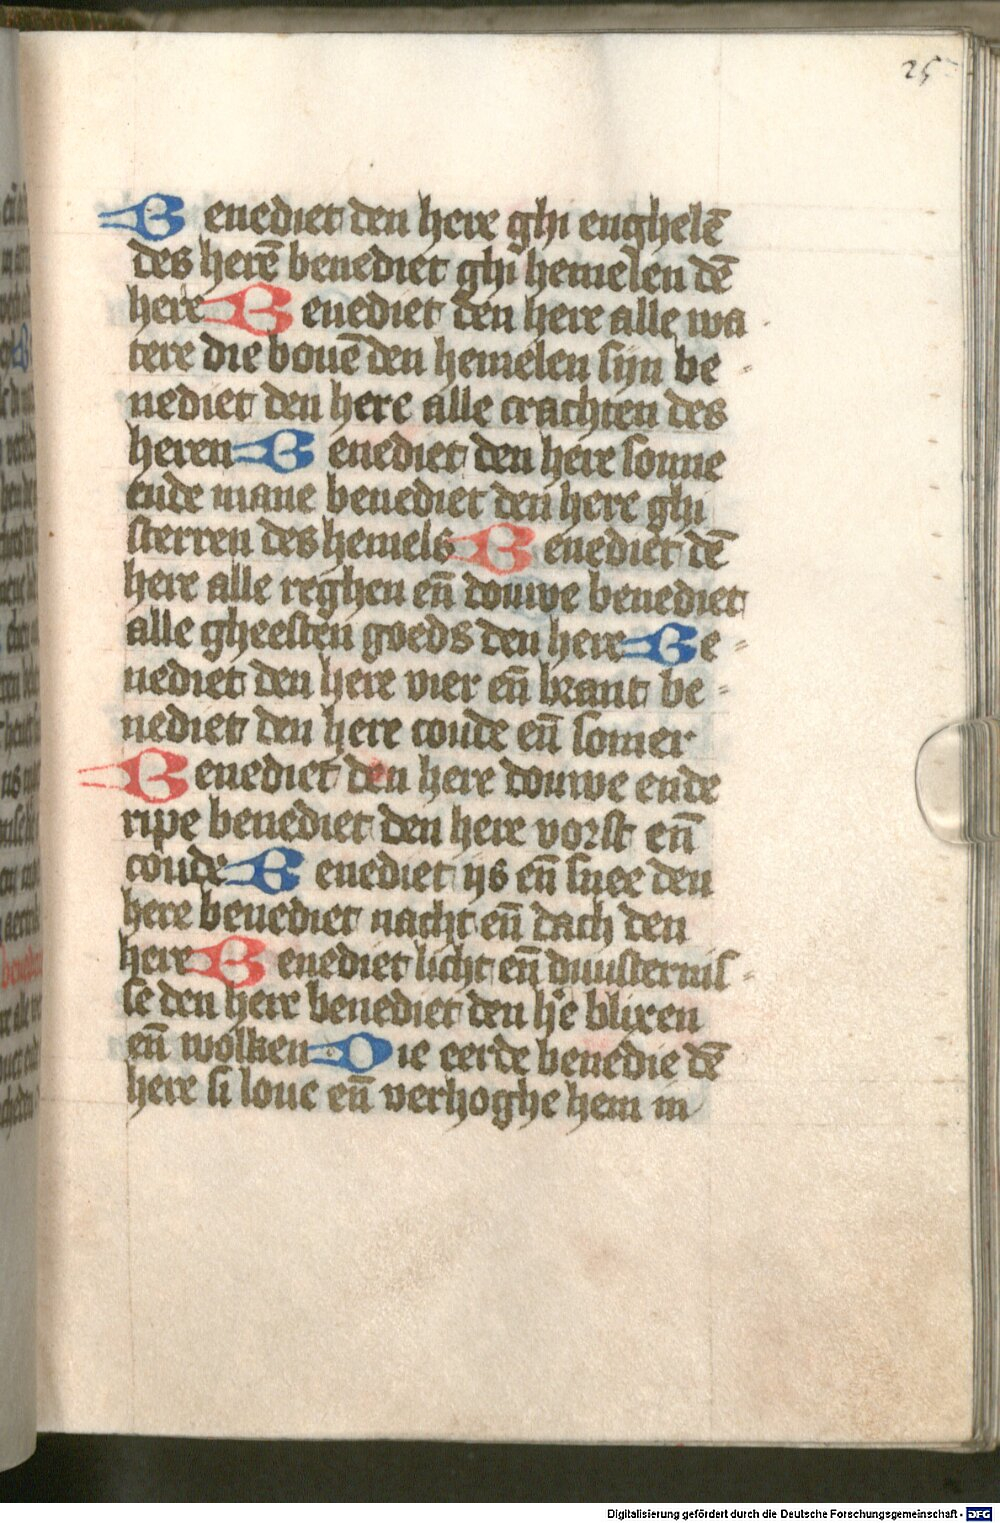 25
Benediet den here ghi enghelē
des herē benediet ghi hemelen dē
here Benediet den here alle wa
tere die bouē den hemelen sijn be
nediet den here alle crachten des
heren Benediet den here sonne
ende mane benediet den here ghi
sterren des hemels Benediet dē
here alle reghen en̄ douwe benediet
alle gheesten goeds den here Be
nediet den here vier en̄ brant be
nediet den here coude en̄ somer
Benediet den here douwe ende
ripe benediet den here vorst en̄
coude Benediet ijs en̄ snee den
here benediet nacht en̄ dach den
here Benediet licht en̄ duusternis
se den here benediet den he blixen
en̄ wolken Die eerde benedie dē
here si loue en̄ verhoghe hem in
Digitalisierung gefördert durch die Deutsche Forschungsgemeinschaft - DFG